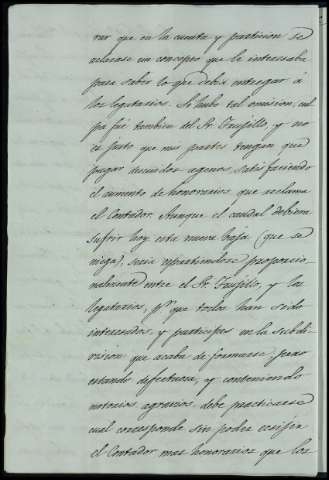 rar que en la cuenta y particion se
aclarase un concepto que le interesaba
para saber lo que debia entregar á
los legatarios. Si hubo tal omision, cul
pa fué tambien del Sr. Trujillo, y no
es justo que mis partes tengan que
pagar descuidos agenos, satisfaciendo
el aumento de honorarios que reclama
el Contador. Aunque el caudal debiera
sufrir hoy esta nueva baja (que se
niega), seria repartiendose proporcio-
nalmente entre el Sr. Trujillo, y los
legatarios, pr. que todos han sido
interesados, y participes en la subdi-
vision que acaba de formarse; pero
estando defectuosa, y conteniendo
notorios agravios, debe practicarse
cual corresponde, sin poder ecsijir
el Contador mas honorarios que los